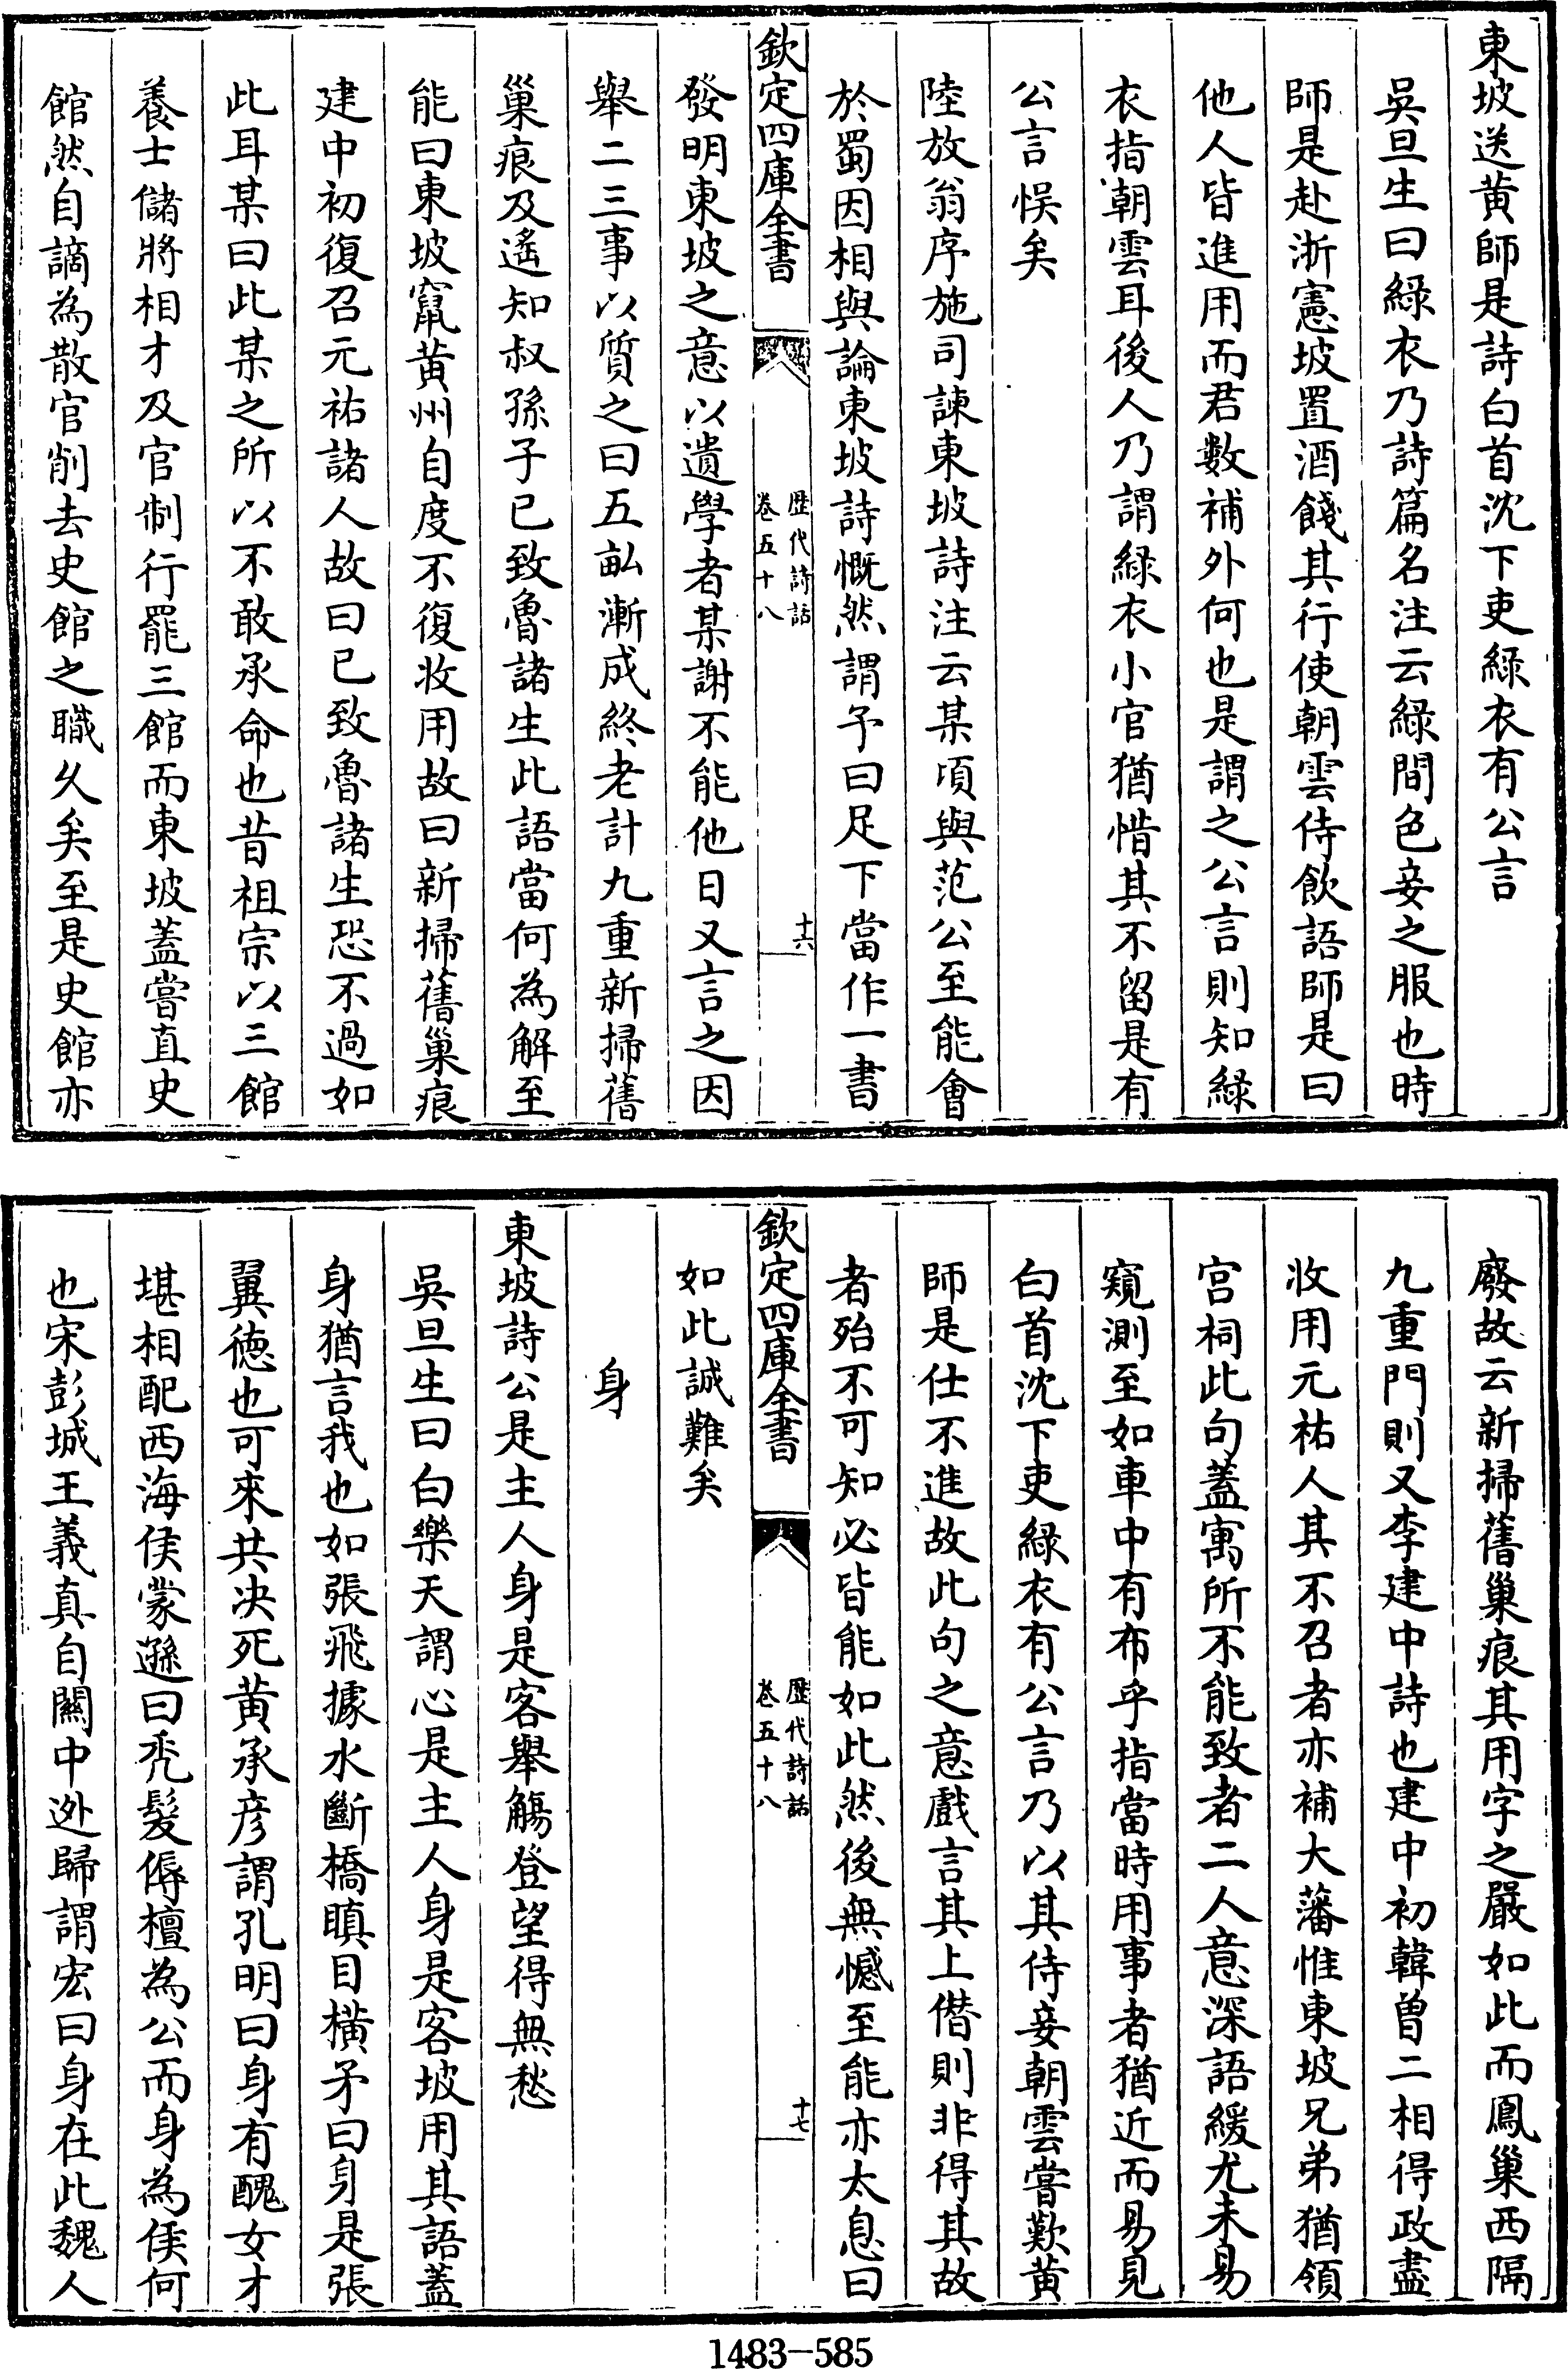 東坡送黄師是詩白首沈下吏綠衣有公言
吳旦生曰綠衣乃詩篇名注云綠間色妾之服也時
師是赴浙憲坡置酒餞其行使朝雲侍飲語師是曰
他人皆進用而君數補外何也是謂之公言則知綠
衣指朝雲耳後人乃謂綠衣小官猶惜其不留是有
公言悞矣
陸放翁序施司諫東坡詩注云某頃與范公至能會
於蜀因相與論東坡詩慨然謂予曰足下當作一書
欽定四庫全書
歴代詩話
卷五十八
十六
發明東坡之意以遺學者某謝不能他日又言之因
舉二三事以質之曰五畝漸成終老計九重新掃舊
巢痕及遙知叔孫子已致魯諸生此語當何為解至
能曰東坡竄黄州自度不復收用故曰新掃舊巢痕
建中初復召元祐諸人故曰已致魯諸生恐不過如
此耳某曰此某之所以不敢承命也昔祖宗以三館
養士儲將相才及官制行罷三館而東坡蓋嘗直史
館然自謫為散官削去史館之職久矣至是史館亦
廢故云新掃舊巢痕其用字之嚴如此而鳳巢西隔
九重門則又李建中詩也建中初韓曽二相得政盡
收用元祐人其不召者亦補大藩惟東坡兄弟猶領
宫祠此句蓋寓所不能致者二人意深語緩尤未易
窺測至如車中有布乎指當時用事者猶近而易見
白首沈下吏綠衣有公言乃以其侍妾朝雲嘗歎黄
師是仕不進故此句之意戲言其上僭則非得其故
者殆不可知必皆能如此然後無憾至能亦太息曰
欽定四庫全書
歴代詩話
卷五十八
十七
如此誠難矣
身
東坡詩公是主人身是客舉觴登望得無愁
吳旦生曰白樂天謂心是主人身是客坡用其語蓋
身猶言我也如張飛據水斷橋瞋目橫矛曰身是張
翼徳也可來共决死黄承彦謂孔明曰身有醜女才
堪相配西海侯蒙遜曰秃髮傉檀為公而身為侯何
也宋彭城王義真自關中迯歸謂宏曰身在此魏人
1483-585